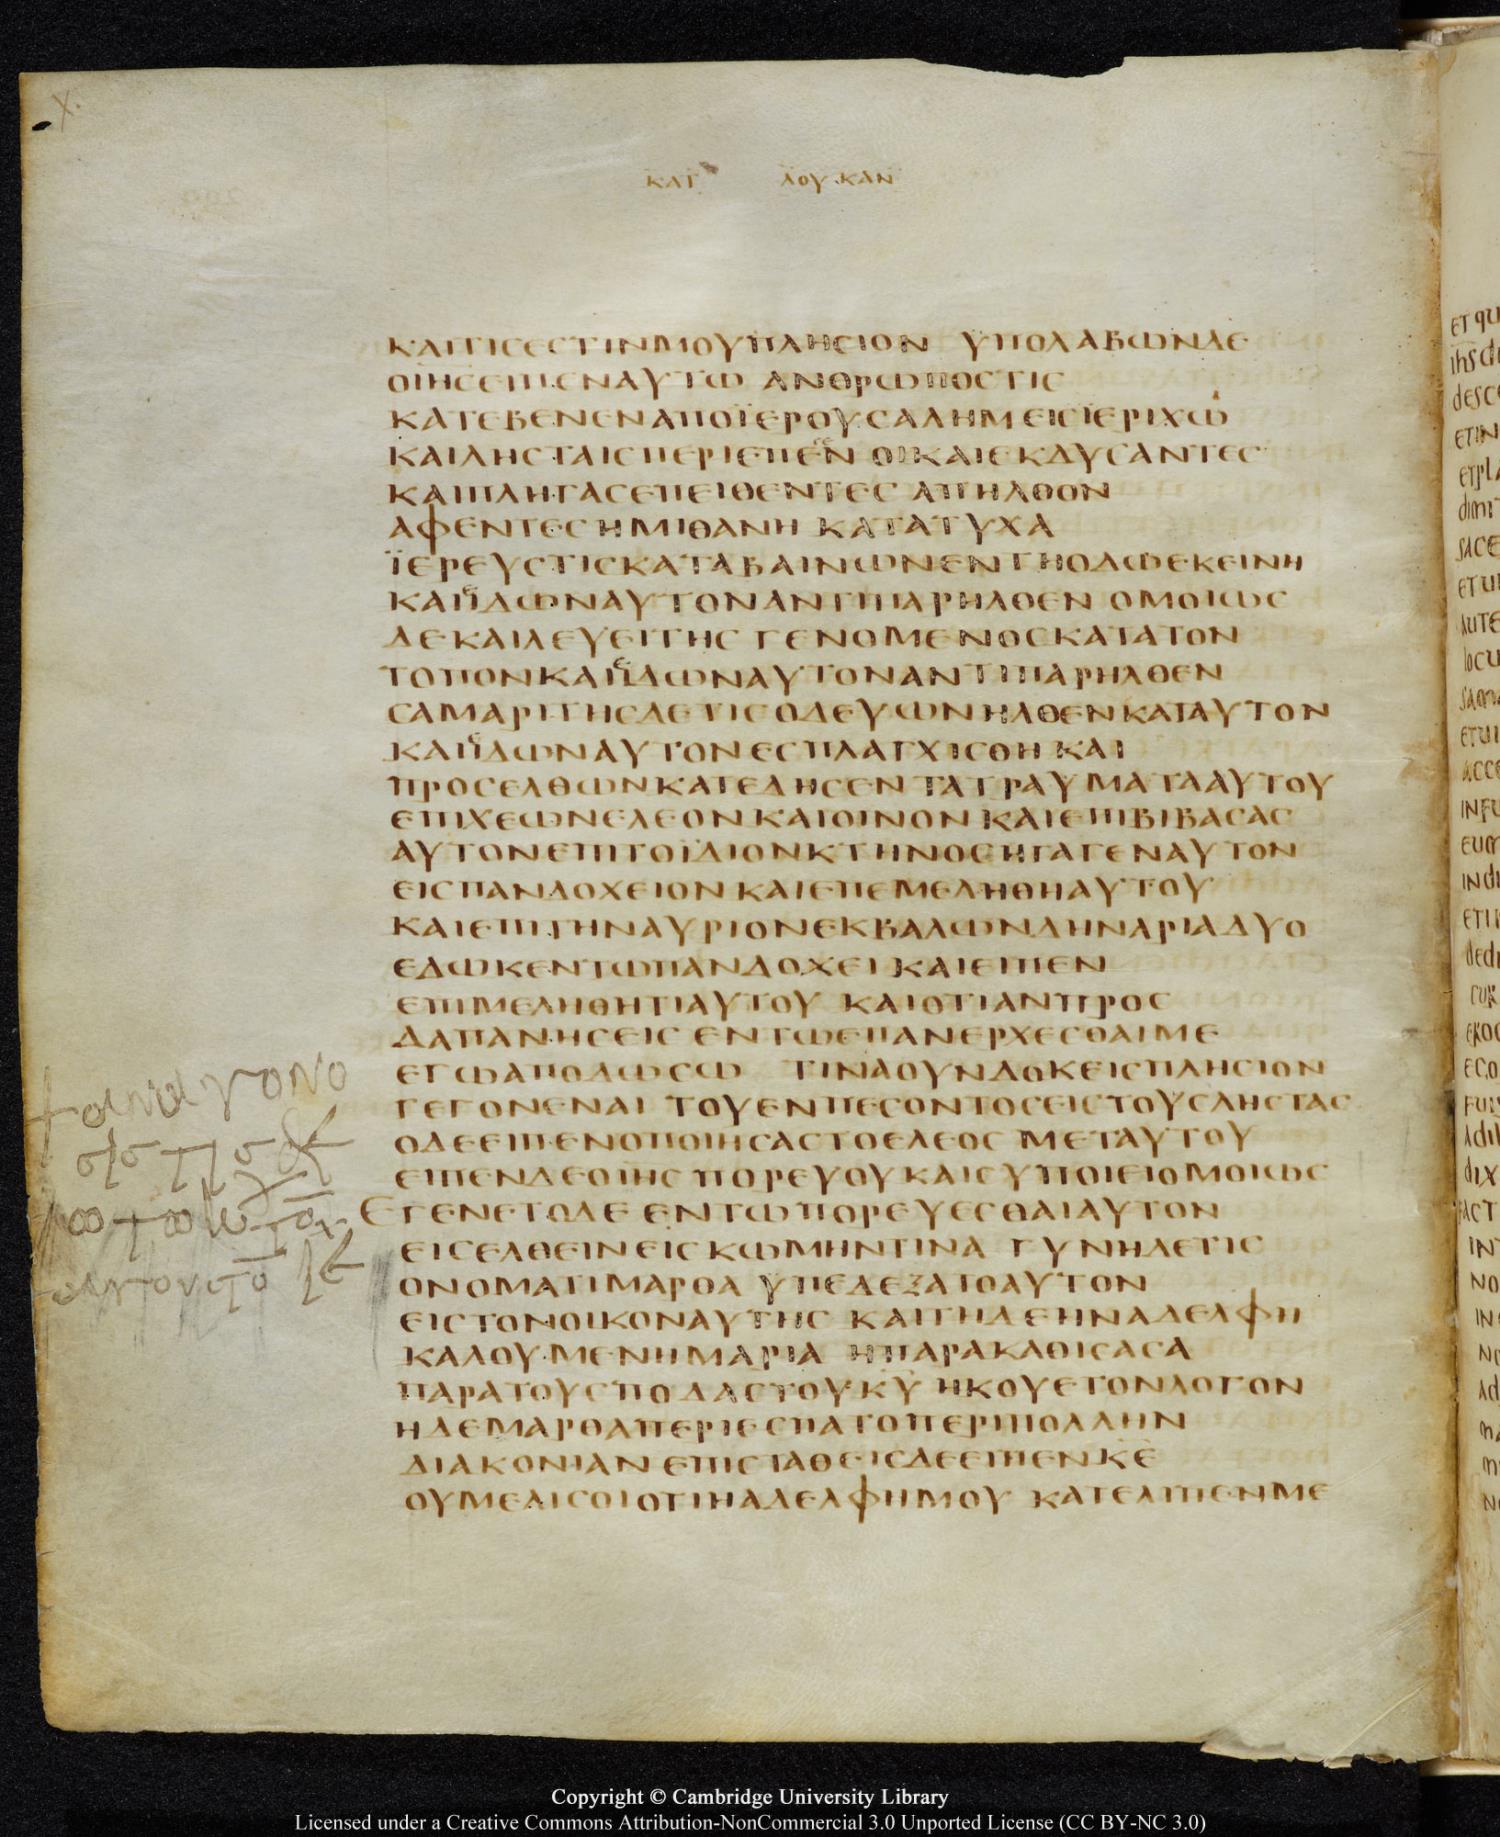 ΚΑΤ ΛΟΥΚΑΝ
ΚΑΙΤΙϹΕϹΤΙΝΜΟΥΠΛΗϹΙΟΝ ΫΠΟΛΑΒΩΝΔΕ
ΟΙΗϹΕΙΠΕΝΑΥΤΩ ΑΝΘΡΩΠΟϹΤΙϹ
ΚΑΤΕΒΕΝΕΝΑΠΟΪΕΡΟΥϹΑΛΗΜΕΙϹΪΕΡΙΧΩ
ΚΑΙΛΗϹΤΑΙϹΠΕΡΙΕΠΕΝ ΟΙΚΑΙΕΚΔΥϹΑΝΤΕϹ
ΚΑΙΠΛΗΓΑϹΕΠΕΙΘΕΝΤΕϹ ΑΠΗΛΘΟΝ
ΑΦΕΝΤΕϹΗΜΙΘΑΝΗ ΚΑΤΑΤΥΧΑ
ΪΕΡΕΥϹΤΙϹΚΑΤΑΒΑΙΝΩΝΕΝΤΗΟΔΩΕΚΕΙΝΗ
ΚΑΙΪΔΩΝΑΥΤΟΝΑΝΤΙΠΑΡΗΛΘΕΝ ΟΜΟΙΩϹ
ΔΕΚΑΙΛΕΥΕΙΤΗϹ ΓΕΝΟΜΕΝΟϹΚΑΤΑΤΟΝ
ΤΟΠΟΝΚΑΙΪΔΩΝΑΥΤΟΝΑΝΤΙΠΑΡΗΛΘΕΝ
ϹΑΜΑΡΙΤΗϹΔΕΤΙϹΟΔΕΥΩΝΗΛΘΕΝΚΑΤΑΥΤΟΝ
ΚΑΙΪΔΩΝΑΥΤΟΝΕϹΠΛΑΓΧΙϹΘΗ ΚΑΙ
ΠΡΟϹΕΛΘΩΝΚΑΤΕΔΗϹΕΝ ΤΑΤΡΑΥΜΑΤΑΑΥΤΟΥ
ΕΠΙΧΕΩΝΕΛΕΟΝΚΑΙΟΙΝΟΝ ΚΑΙΕΠΙΒΙΒΑϹΑϹ
ΑΥΤΟΝΕΠΙΤΟΪΔΙΟΝΚΤΗΝΟϹΗΓΑΓΕΝΑΥΤΟΝ
ΕΙϹΠΑΝΔΟΧΕΙΟΝ ΚΑΙΕΠΕΜΕΛΗΘΗΑΥΤΟΥ
ΚΑΙΕΠΙΤΗΝΑΥΡΙΟΝΕΚΒΑΛΩΝΔΗΝΑΡΙΑΔΥΟ
ΕΔΩΚΕΝΤΩΠΑΝΔΟΧΕΙ ΚΑΙΕΙΠΕΝ
ΕΠΙΜΕΛΗΘΗΤΙΑΥΤΟΥ ΚΑΙΟΤΙΑΝΠΡΟϹ
ΔΑΠΑΝΗϹΕΙϹ ΕΝΤΩΕΠΑΝΕΡΧΕϹΘΑΙΜΕ
ΕΓΩΑΠΟΔΩϹΩ ΤΙΝΑΟΥΝΔΟΚΕΙϹΠΛΗϹΙΟΝ
ΓΕΓΟΝΕΝΑΙ ΤΟΥΕΝΠΕϹΟΝΤΟϹΕΙϹΤΟΥϹΛΗϹΤΑϹ
ΟΔΕΕΙΠΕΝΟΠΟΙΗϹΑϹΤΟΕΛΕΟϹ ΜΕΤΑΥΤΟΥ
ΕΙΠΕΝΔΕΟΙΗϹ ΠΟΡΕΥΟΥΚΑΙϹΥΠΟΙΕΙΟΜΟΙΩϹ
ΕΓΕΝΕΤΟΔΕ ΕΝΤΩΠΟΡΕΥΕϹΘΑΙΑΥΤΟΝ
ΕΙϹΕΛΘΕΙΝΕΙϹΚΩΜΗΝΤΙΝΑ ΓΥΝΗΔΕΤΙϹ
ΟΝΟΜΑΤΙΜΑΡΘΑ ΫΠΕΔΕΞΑΤΟΑΥΤΟΝ
ΕΙϹΤΟΝΟΙΚΟΝΑΥΤΗϹ ΚΑΙΤΗΔΕΗΝΑΔΕΛΦΗ
ΚΑΛΟΥΜΕΝΗΜΑΡΙΑ ΗΠΑΡΑΚΑΘΙϹΑϹΑ
ΠΑΡΑΤΟΥϹΠΟΔΑϹΤΟΥΚΥ ΗΚΟΥΕΤΟΝΛΟΓΟΝ
ΗΔΕΜΑΡΘΑΠΕΡΙΕϹΠΑΤΟΠΕΡΙΠΟΛΛΗΝ
ΔΙΑΚΟΝΙΑΝ ΕΠΙϹΤΑΘΕΙϹΔΕΕΙΠΕΝΚΕ
ΟΥΜΕΛΙϹΟΙΟΤΙΗΑΔΕΛΦΗΜΟΥ ΚΑΤΕΛΙΠΕΝΜΕ
Copyright © Cambridge University Library
Licensed under a Creative Commons Attribution-NonCommercial 3.0 Unported License (CC BY-NC 3.0)